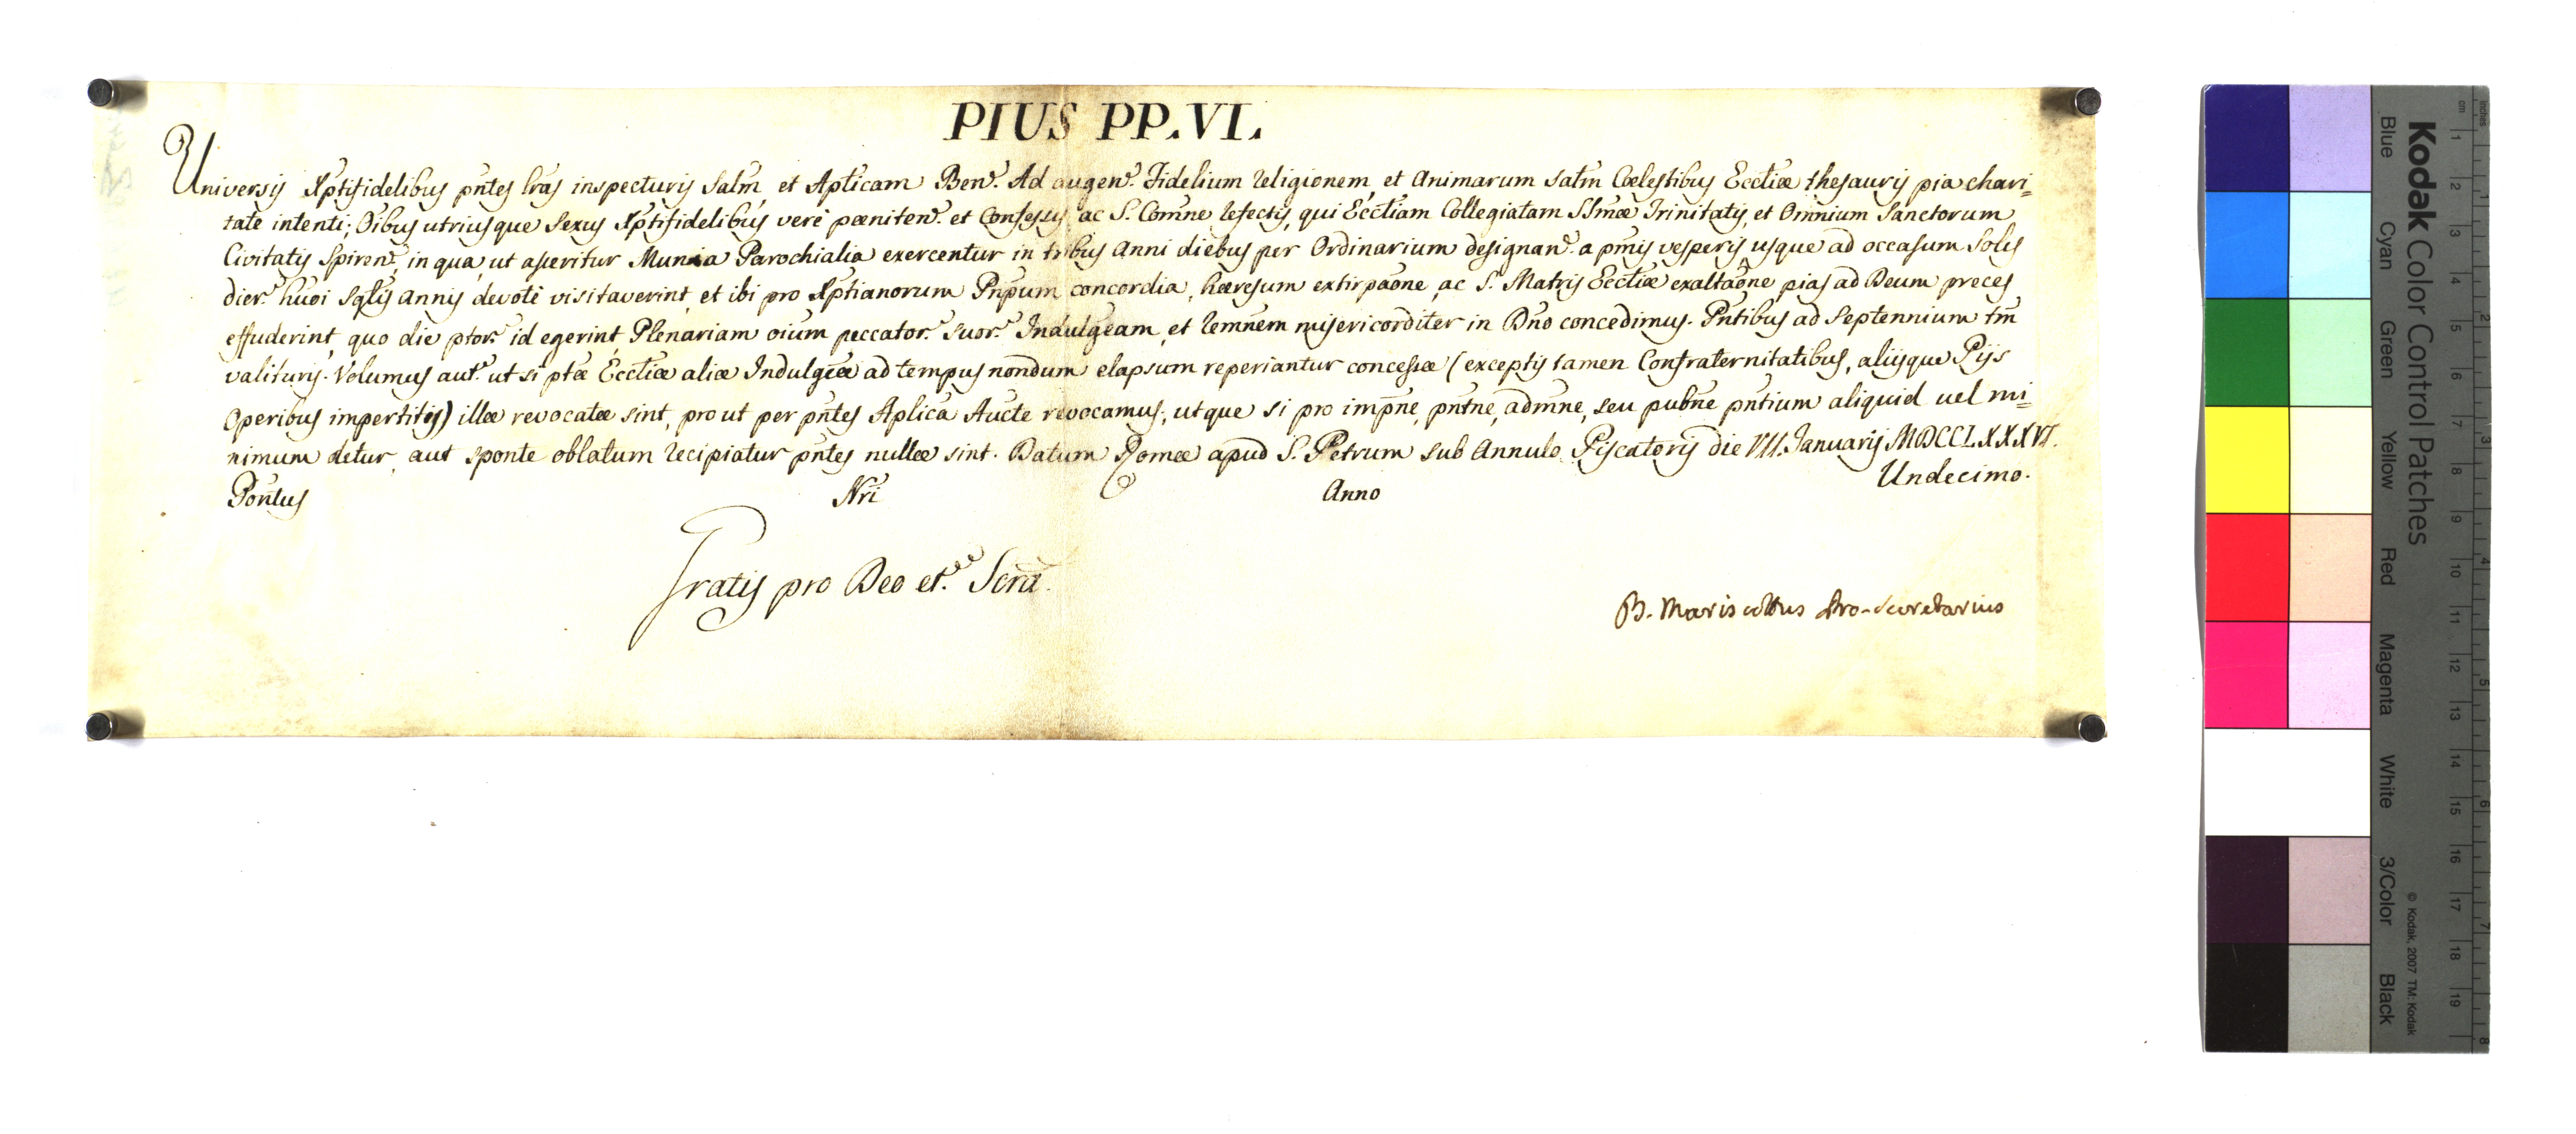 PIUS PP. VI.
Universis Xptifidelibus pntes lras inspecturis Salm et Apticam Ben. Ad augen. Fidelium religionem, et Animarum satm Coelestibus Ecctiæ thesauris pia chari=
tate intenti; Oibus utriusque sexus Xptifidelibus verè pæniten. et Confessis, ac S. Comne refectis, qui Ecctiam Collegiatam SSmæ Trinitatis, et Omnium Sanctorum
Civitatis Spiren. in qua, ut asseritur Munia Parochialia exercentur in tribus Anni diebus per Ordinarium designan. a pmis vesperis usque ad occasum Solis
dier. huoi Sqlis annis devotè visitaverint, et ibi pro Xptianorum Pnpum concordia, hæresum extirpaone, ac S. Matris Ecctiæ exaltaone pias ad Deum preces
effuderint, quo die ptor. id egerint, Plenariam oium peccator. suor. Indulgeam, et remnem misericorditer in Dno concedimus. Pntibus ad Septennium tm
valituris. Volumus aut. ut si ptæ Ecctiæ aliæ Indulgiæ ad tempus nondum elapsum reperiantur concessæ (exceptis tamen Confraternitatibus, aliisque Pijs
Operibus impertitis) illæ revocatæ sint, prout per pntes Aplica Aucte revocamus, utque si pro impne, pntne, admne, seu pubne pntium aliquid vel mi=
nimum detur, aut sponte oblatum recipiatur pntes nullæ sint. Datum Romæ apud S. Petrum sub Annulo Piscatoris die VII. Januarij MDCCLXXXVI.
Pontus Nri Anno Undecimo.
Gratis pro Deo et. Scra
B. Mariscottus Pro-Secretarius
Kodak Color Control Patches
Blue Cyan Green Yellow Red Magenta White 3/Color Black
© Kodak, 2007 TM: Kodak
cm 1 2 3 4 5 6 7 8 9 10 11 12 13 14 15 16 17 18 19
inches 1 2 3 4 5 6 7 8